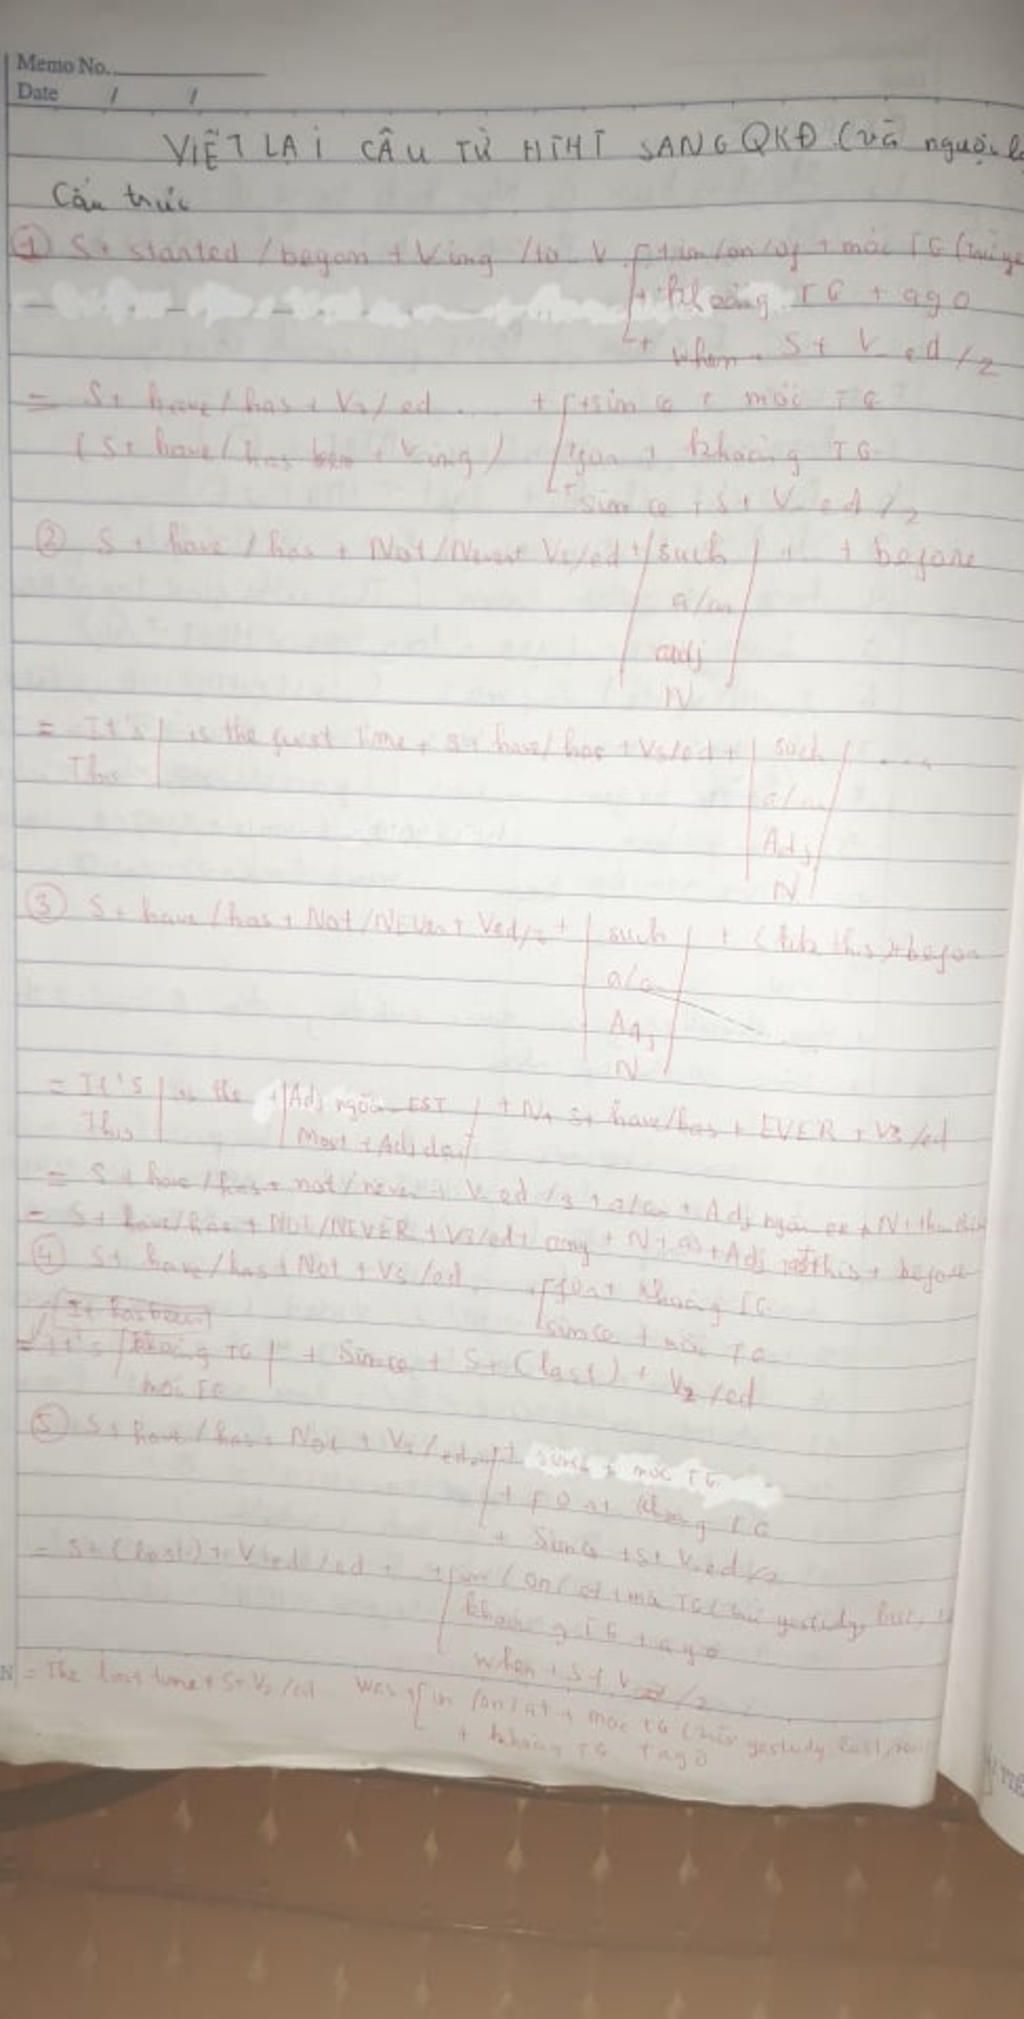 Memo No.
Date / /
VIẾT LẠI CÂU TỪ HTHT SANG QKĐ (và người
Cấu trúc
① S + started / began + Ving / to V + in/on/at + mốc TG (
+ khoảng TG + ago
+ when + S + V ed/2
= S + have / has + V3/ed ... + since + mốc TG
(S + have / has been + Ving) for + khoảng TG
since + S + V ed/2
② S + have / has + Not/Never + V3/ed + such + + before
a/an
adj
N
= It's is the first time + S + have/has + V3/ed + such ....
This a/an
Adj
N
③ S + have / has + Not/NEVER + Ved/3 + such + (like this) + before
a/an
Adj
N
= It's is the Adj ngắn EST + N + S + have/has + EVER + V3/ed
This Most + Adj dài
= S + have / has + not/never + V ed/3 + a/an + Adj ngắn er + N + than this
= S + have/has + NOT/NEVER + V3/ed + any + N + as + Adj this + before
④ S + have/has + Not + V3/ed for + khoảng TG
It has been since + mốc TG
= It's khoảng TG + Since + S + (last) + V2/ed
mốc TG
⑤ S + have / has + Not + V3/ed + since + mốc TG
+ for + khoảng TG
+ Since + S + V ed/2
= S + (last) + V ed + in / on / at + mốc TG ( yesterday, last,
khoảng TG + ago
when + S + V ed/2
N = The last time + S + V2/ed was + in /on/at + mốc TG ( yesterday last,
+ khoảng TG + ago